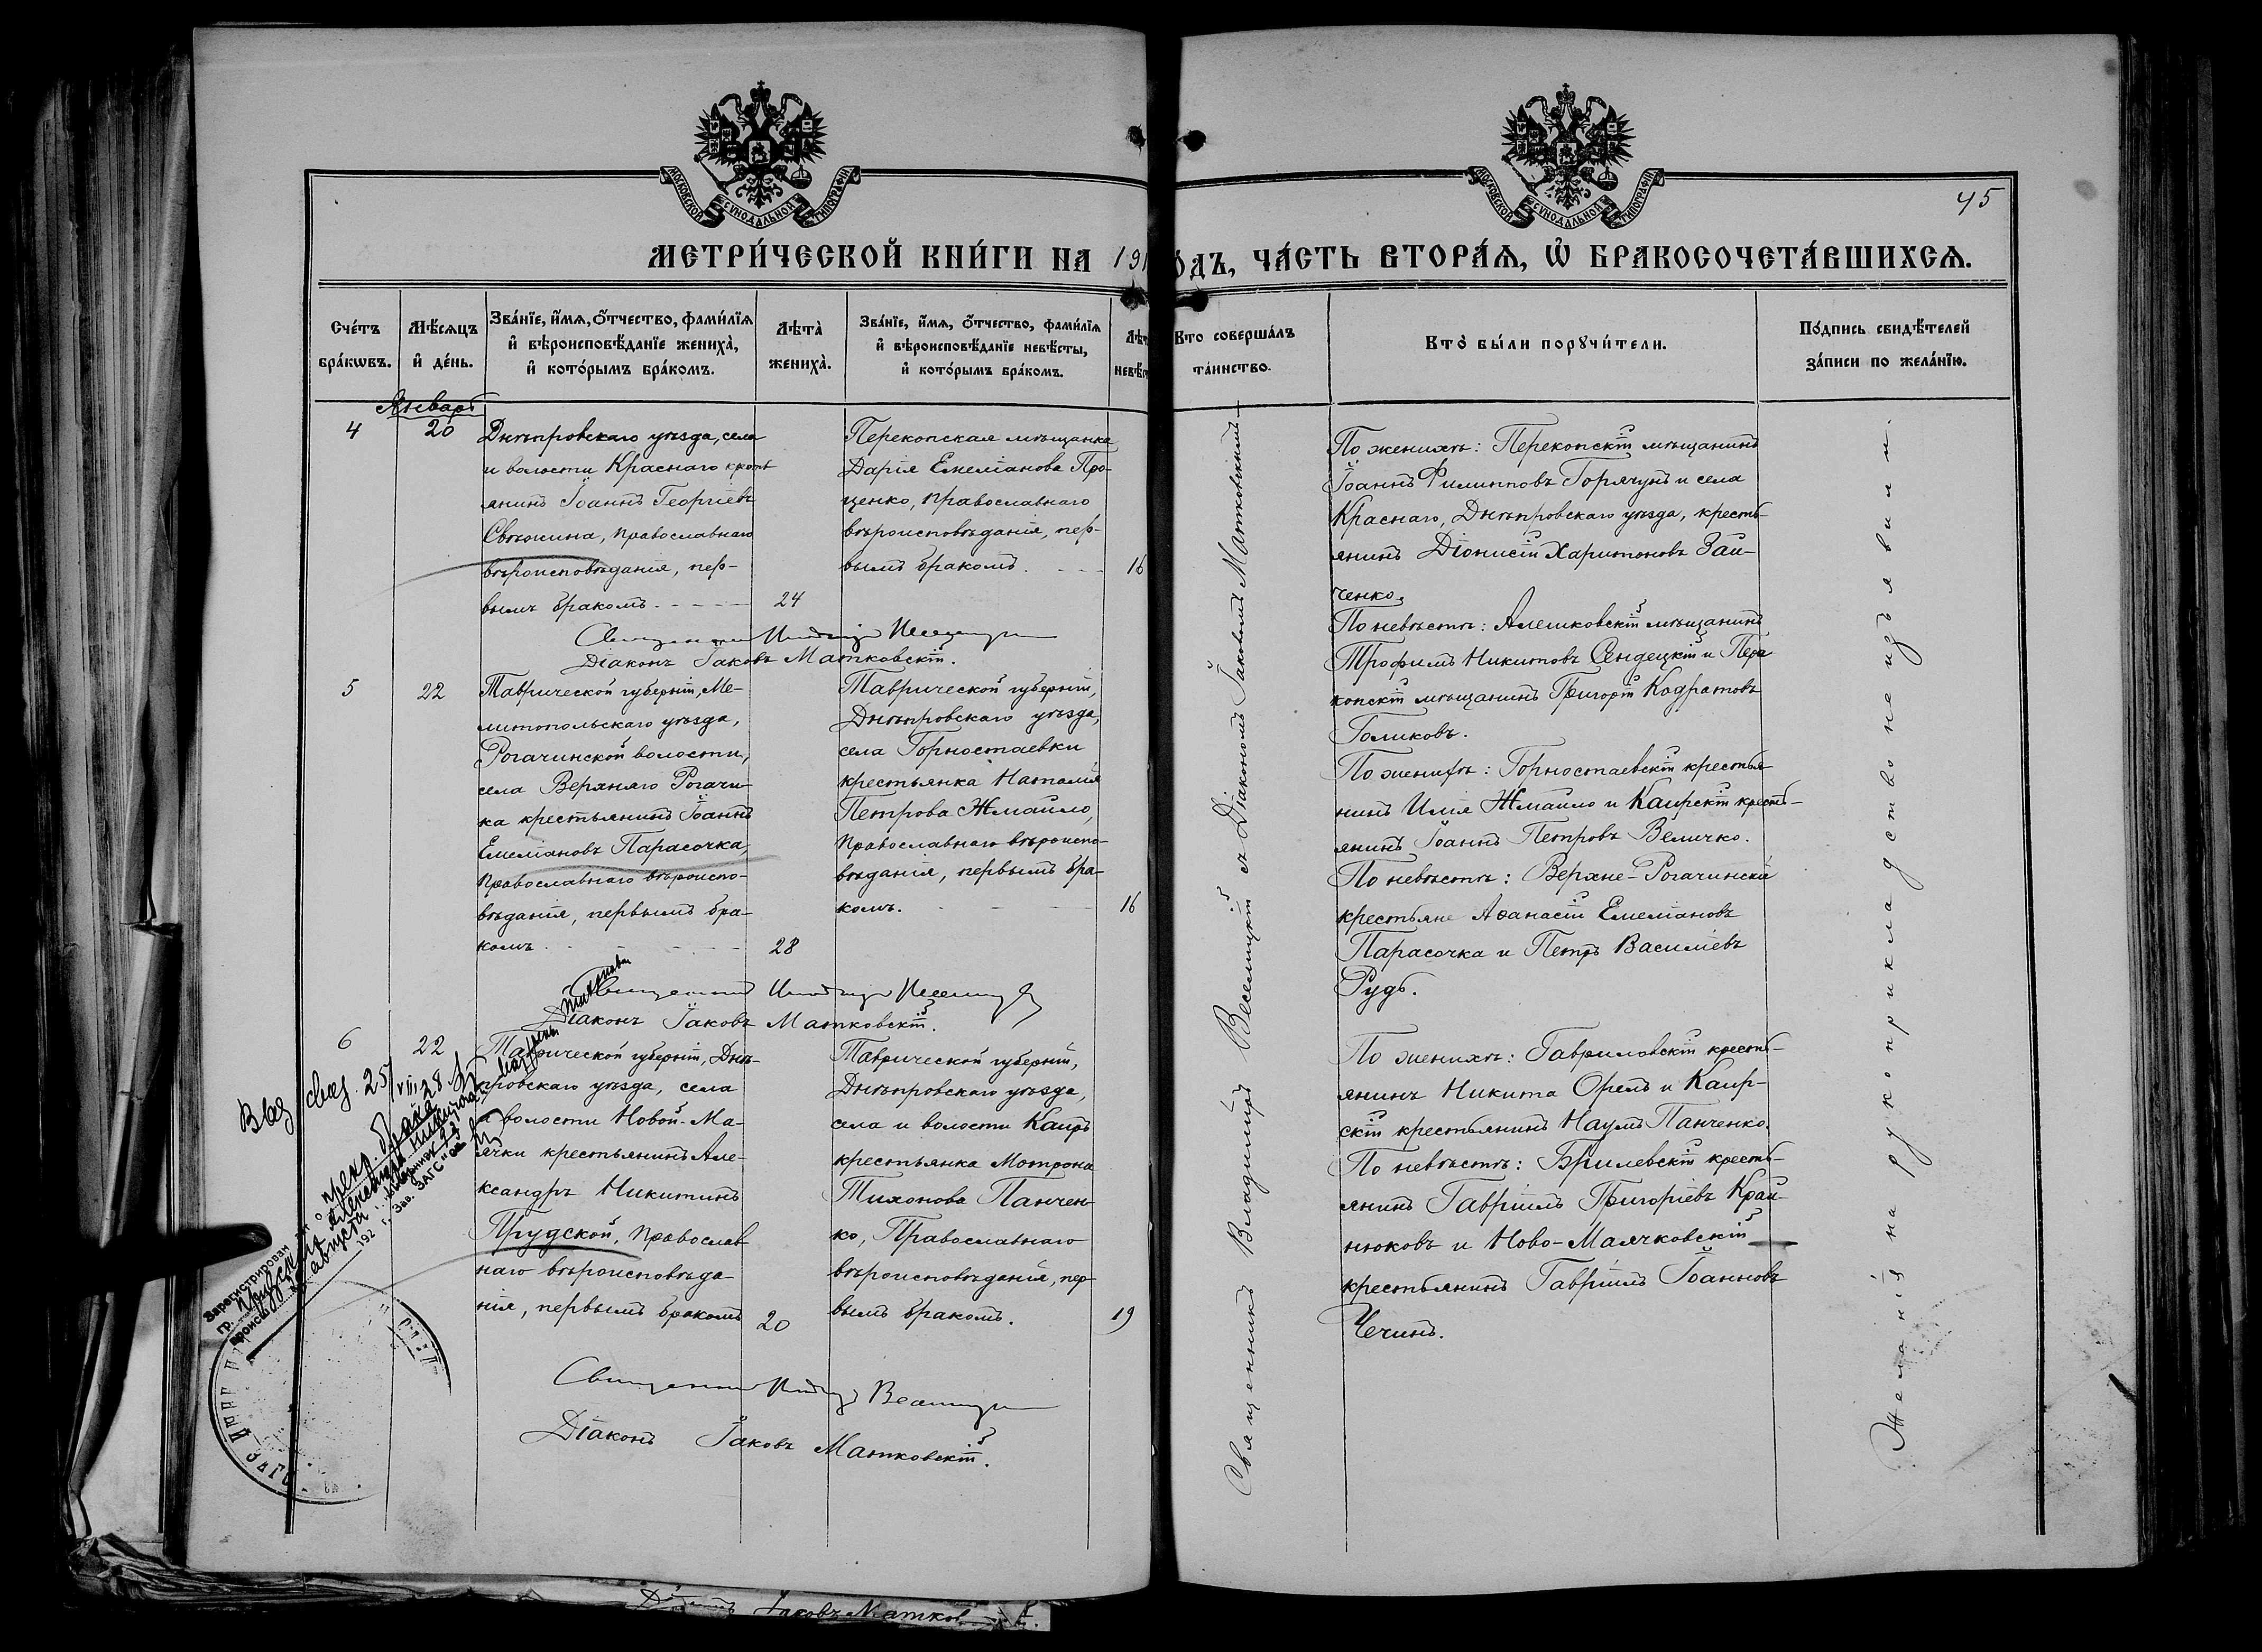 МОСКОВСКОЙ СѴНОДАЛЬНОЙ ТИПОГРАФІИ
МОСКОВСКОЙ СѴНОДАЛЬНОЙ ТИПОГРАФІИ
45
МЕТРИ́ЧЕСКОЙ КНИ́ГИ НА 191
О́ДЪ, ЧА́СТЬ ВТОРА́Я, Ѡ҆ БРАКОСОЧЕТА́ВШИХСЯ.
Сче́тъ
бра́кѡвъ.
Мѣ́сяцъ
и҆ де́нь.
Зва́нїе, и҆́мя, ѻ҆́тчество, фами́лїя
и҆ вѣроисповѣ́данїе жениха̀,
и҆ кото́рымъ бра́комъ.
Лѣта̀
жениха̀.
Зва́нїе, и҆́мя, ѻ҆́тчество, фами́лїя
и҆ вѣроисповѣ́данїе невѣ́сты,
и҆ кото́рымъ бра́комъ.
Кто соверша́лъ
та́инство.
Кто̀ бы́ли порꙋчи́тели.
По́дпись свидѣ́телей
за́писи по жела́нїю.
Январь
4
20
Днѣпровскаго уѣзда, села
и волости Краснаго кресть
янинъ Іоаннъ Георгіевъ
православнаго
вѣроисповѣданія, пер-
вымъ бракомъ.
24
Перекопская мѣщанка
Дарія Емеліанова Про-
ценко, православнаго
вѣроисповѣданія, пер-
вымъ бракомъ.
16
По женихѣ: Перекопскій мѣщанинъ
Іоаннъ Филипповъ Горячунъ и села
Краснаго, Днѣпровскаго уѣзда, кресть-
янинъ Діонисій Харитоновъ Заи-
ченко.
По невѣстѣ: Алешковскій мѣщанинъ
Трофимъ Никитовъ Сендецкій и Пере
копскій мѣщанинъ Григорій Кодратовъ
Голиковъ.
Священникъ
Діаконъ Іаковъ Матковскій.
5
22
Таврической губерніи, Ме-
литопольскаго уѣзда,
Рогачинской волости,
села Верхняго Рогачи-
ка крестьянинъ Іоаннъ
Емеліановъ Парасочка,
православнаго вѣроиспо-
вѣданія, первымъ бра-
комъ.
28
Таврической губерніи,
Днѣпровскаго уѣзда,
села Горностаевки
крестьянка Наталія
Петрова Жмайло,
православнаго вѣроиспо-
вѣданія, первымъ бра-
комъ.
16
По женихѣ: Горностаевскій крестья
нинъ Илія Жмайло и Каирскій кресть-
янинъ Іоаннъ Петровъ Величко.
По невѣстѣ: Верхне-Рогачинскіе
крестьяне Аѳанасій Емеліановъ
Парасочка и Петръ Василіевъ
Рудь.
Священникъ
Діаконъ Іаковъ Матковскій.
6
22
Таврической губерніи, Днѣ-
провскаго уѣзда, села
и волости Новой-Ма-
ячки крестьянинъ Але-
ксандръ Никитинъ
Прудской, православ
наго вѣроисповѣда-
нія, первымъ бракомъ
20
Таврической губерніи,
Днѣпровскаго уѣзда,
села и волости Каиръ
крестьянка Мотрона
Тихонова Панчен-
ко, Православнаго
вѣроисповѣданія, пер-
вымъ бракомъ.
19
По женихѣ: Гавриловскій кресть-
янинъ Никита Орелъ и Каир-
скій крестьянинъ Наумъ Панченко.
По невѣстѣ: Брилевскій кресть-
янинъ Гавріилъ Григоріевъ Край-
нюковъ и Ново-Маячковскій
крестьянинъ Гавріилъ Іоанновъ
Чечинъ.
Священникъ
Діаконъ Іаковъ Матковскій.
Священникъ Владиміръ Веселицкій съ Діакономъ Іаковомъ Матковскимъ
Желанія на рукоприкладство не изъявили.
Зарегистрирован
гр. Прудским Александром
августа 192
Зав. ЗАГС
ЗАГС